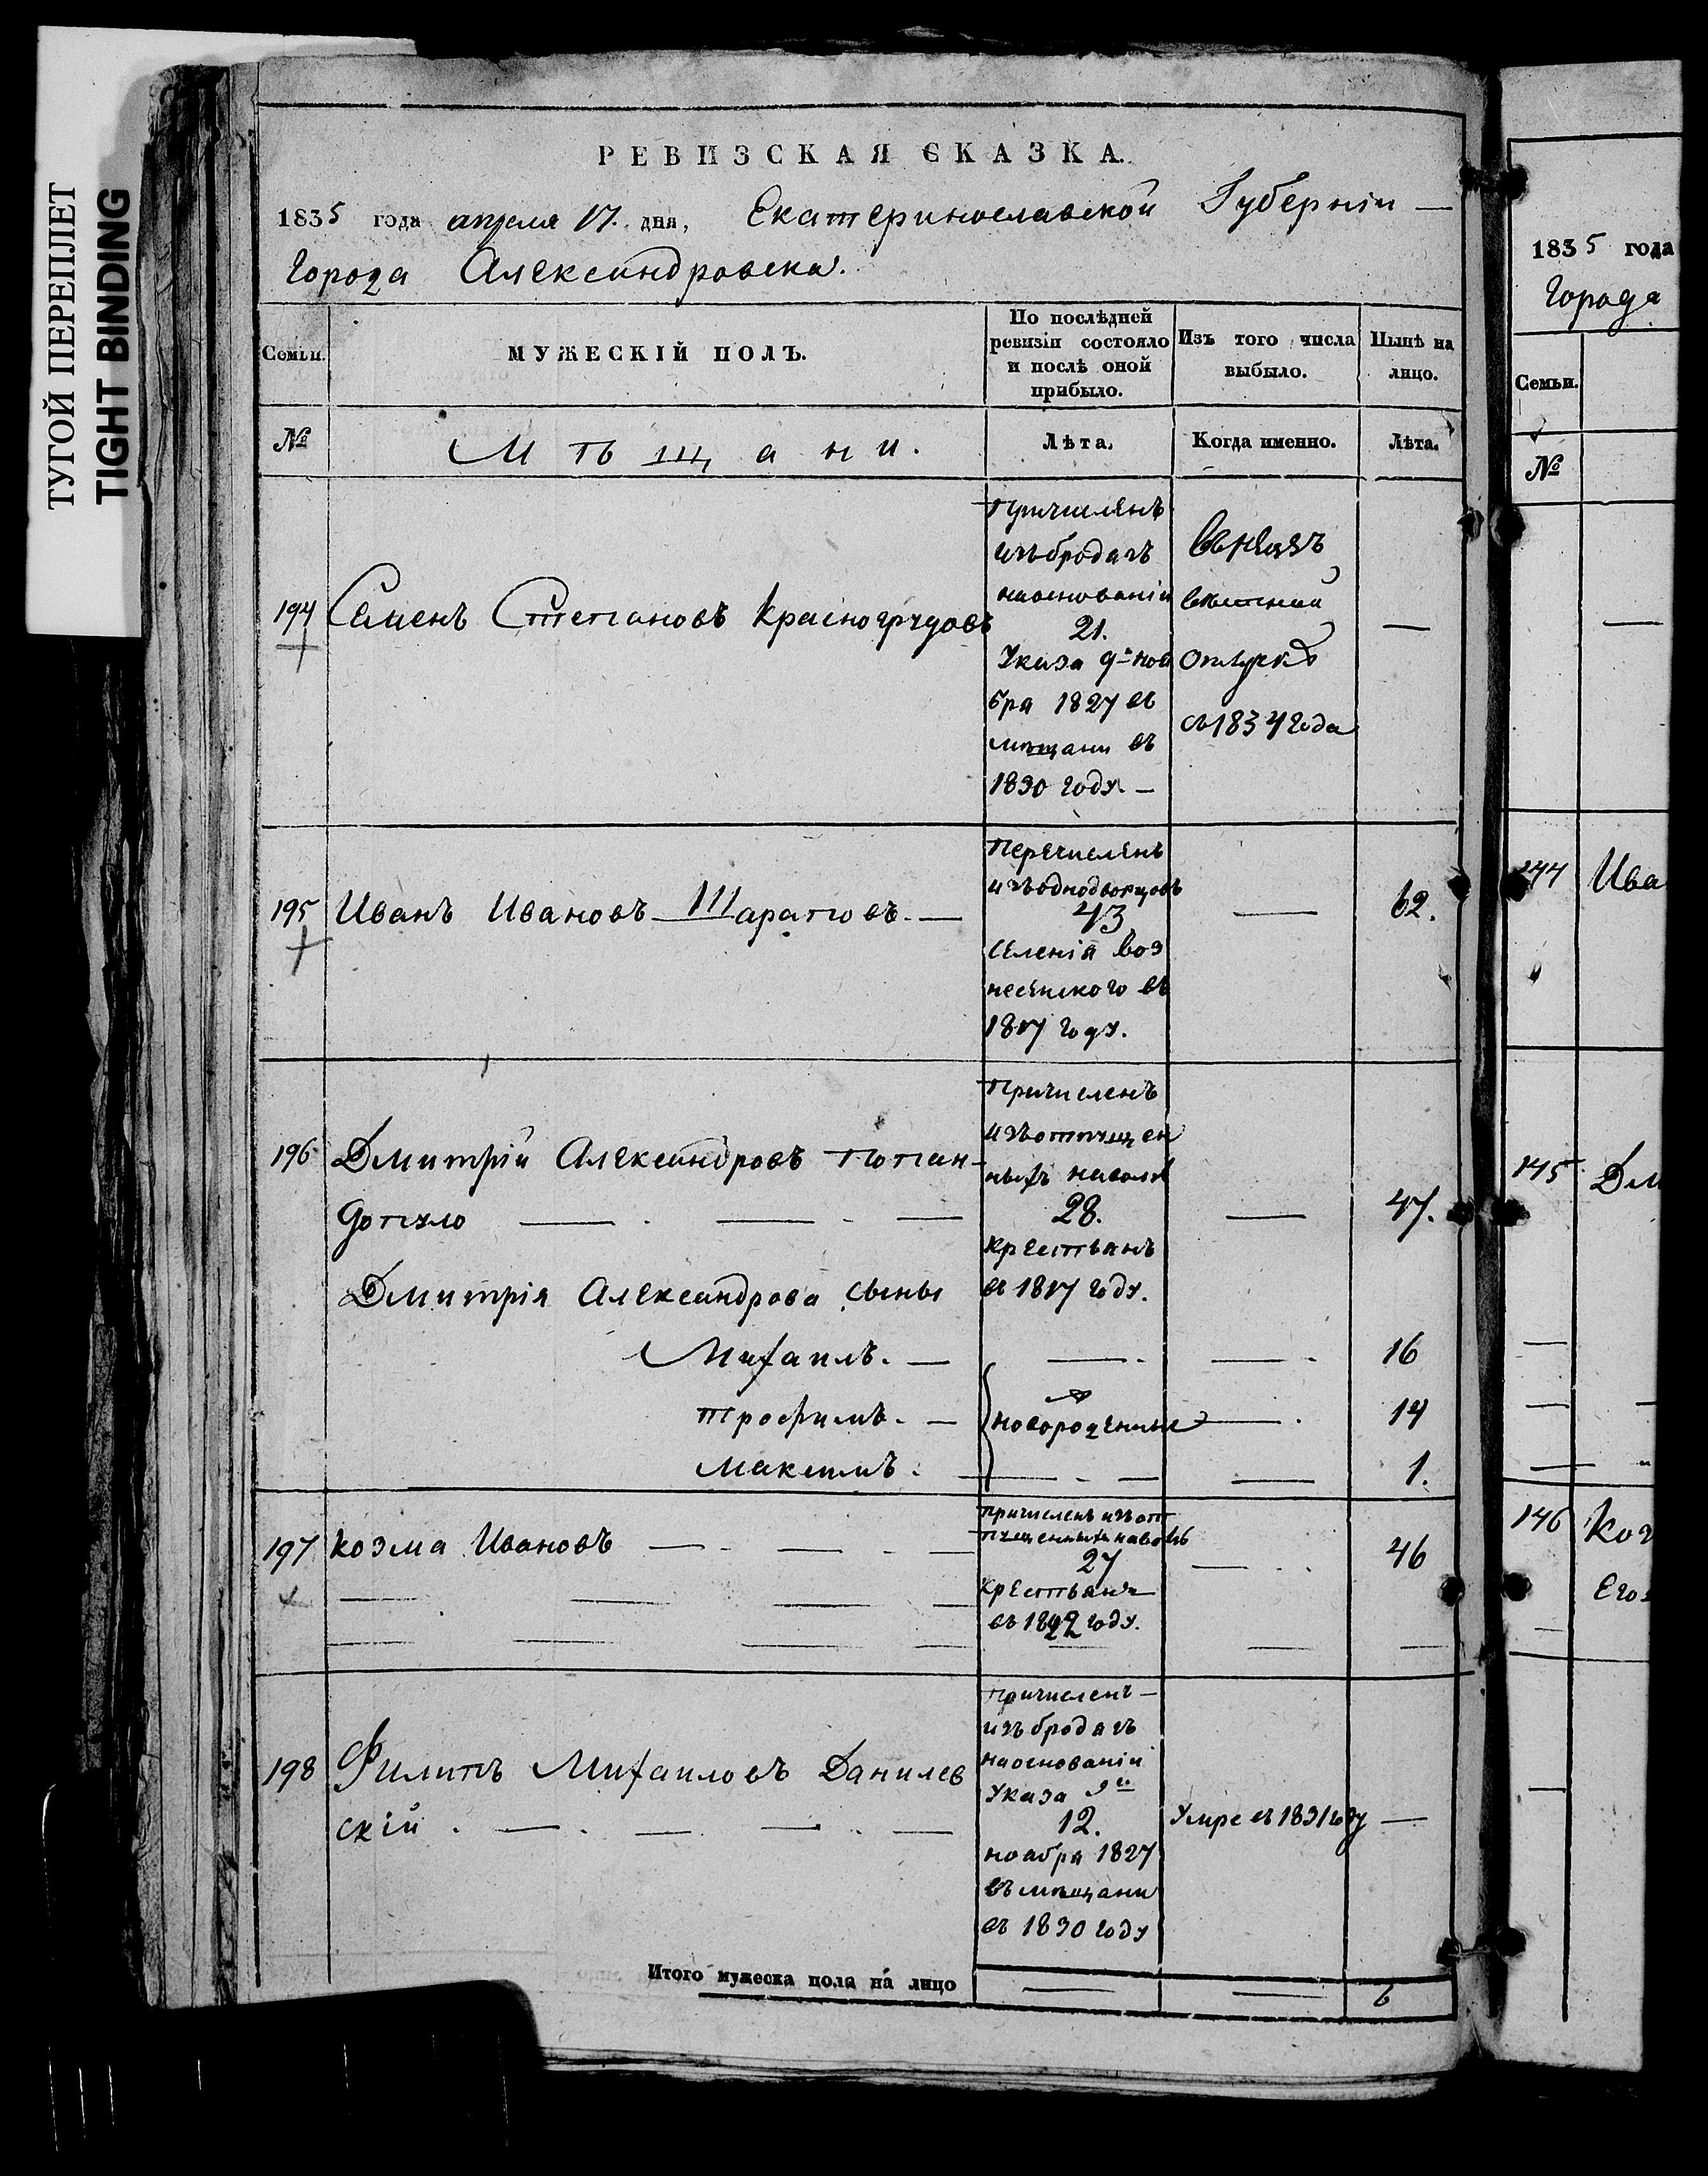 ТУГОЙ ПЕРЕПЛЕТ
TIGHT BINDING
РЕВИЗСКАЯ СКАЗКА.
1835 года апреля 17. дня, Екатеринославской Губернiи —
Города Александровска.
Семьи.
МУЖЕСКIЙ ПОЛЪ.
По послѣдней
ревизiи состояло
и послѣ оной
прибыло.
Изъ того числа
выбыло.
Нынѣ на
лицо.
№
Мѣщани.
Лѣта.
Когда именно.
Лѣта.
194 Семенъ Степановъ
Причисленъ
изъ бродягъ
наоснованiи
21.
Указа 9го ноя
бря 1827 въ
мѣщани въ
1830 году —
отлучкѣ
съ 1834 года
—
195 Иванъ Ивановъ Шараповъ. —
Перечисленъ
изъ однодворцовъ
43
селенiя Воз
несенского въ
1817 году.
—
62.
196 Дмитрiй Александровъ Попан-
допуло — . — . —
Причисленъ
изъ отпущен
ныхъ наволю
28.
крестьянъ
въ 1817 году.
—
47.
Дмитрiя Александрова сыны
Михаилъ. — — . — . 16
Трофимъ. — новорожденные — . 14
Максимъ. — . — — 1.
197 Козма Ивановъ — . — . — . —
Причисленъ изъ от
пущенныхъ наволю
27
крестьянъ
въ 1822 году.
— . .
46
198 Филипъ Михаиловъ Данилев
скiй . — . — . — . —
Причисленъ —
изъ бродягъ
наоснованiи
Указа 9го
12.
ноября 1827
въ мѣщани
въ 1830 году
Умре въ 1831 году —
Итого мужеска пола на лицо — — 6
1835 года
Города
Семьи.
№
—
144 Ива
145 Дм
—
—
—
146 Коз
Его
—
—